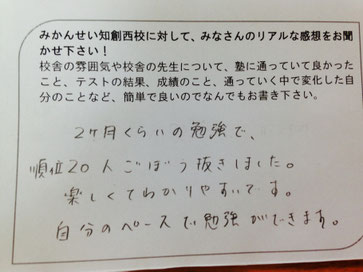 みかんせい知創西校に対して、みなさんのリアルな感想をお聞
かせ下さい！
校舎の雰囲気や校舎の先生について、塾に通っていて良かった
こと、テストの結果、成績のこと、通っていく中で変化した自
分のことなど、簡単で良いのでなんでもお書き下さい。
2ヶ月くらいの勉強で、
順位20人ごぼう抜きしました。
楽しくてわかりやすいです。
自分のペースで勉強ができます。